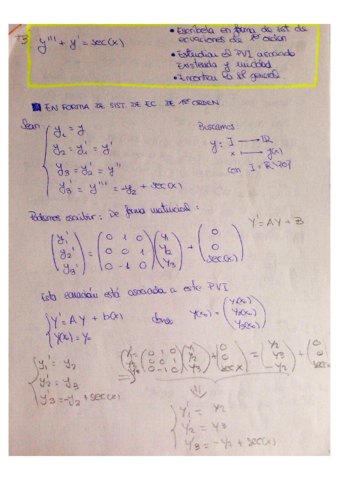 3 y''' + y' = sec(x)
• Escribela en forma de sist de ecuaciones de 1er orden
• Estudiar el PVI asociado Existencia y unicidad
• Encontrar la solº general
EN FORMA DE SIST. DE EC. DE 1er ORDEN
Sean
y₁ = y
y₂ = y₁' = y'
y₃ = y₂' = y''
y₃' = y''' = -y₂ + sec(x)
Buscamos
y: I → ℝ
x → y(x)
con I = ℝ\{0}
Podemos escribir: De forma matricial:
(y₁' y₂' y₃') = (0 1 0 / 0 0 1 / 0 -1 0) (y₁ y₂ y₃) + (0 0 sec(x))
Y' = AY + B
Esta ecuación está asociada a este PVI
Y' = AY + b(x)
Y(x₀) = Y₀
donde Y(x₀) = (y₁(x₀) y₂(x₀) y₃(x₀))
y₁' = y₂
y₂' = y₃
y₃' = -y₂ + sec(x)
(0 1 0 / 0 0 1 / 0 -1 0) (y₁ y₂ y₃) + (0 0 sec x) = (y₂ y₃ -y₂) + (0 0
y₁' = y₂
y₂' = y₃
y₃' = -y₂ + sec(x)